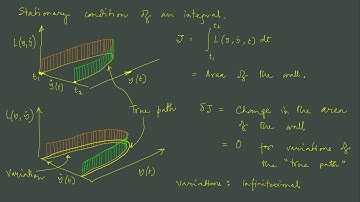 Stationary condition of an integral.
L(y, ẏ)
t₁
ẏ(t)
t₂
y(t)
J = ∫ L(y, ẏ, t) dt
t₂
t₁
= Area of the wall.
True path
L(y, ẏ)
variation
ẏ(t)
y(t)
δJ = Change in the area
of the wall
= 0 for variations of
the "true path"
variations : infinitesimal